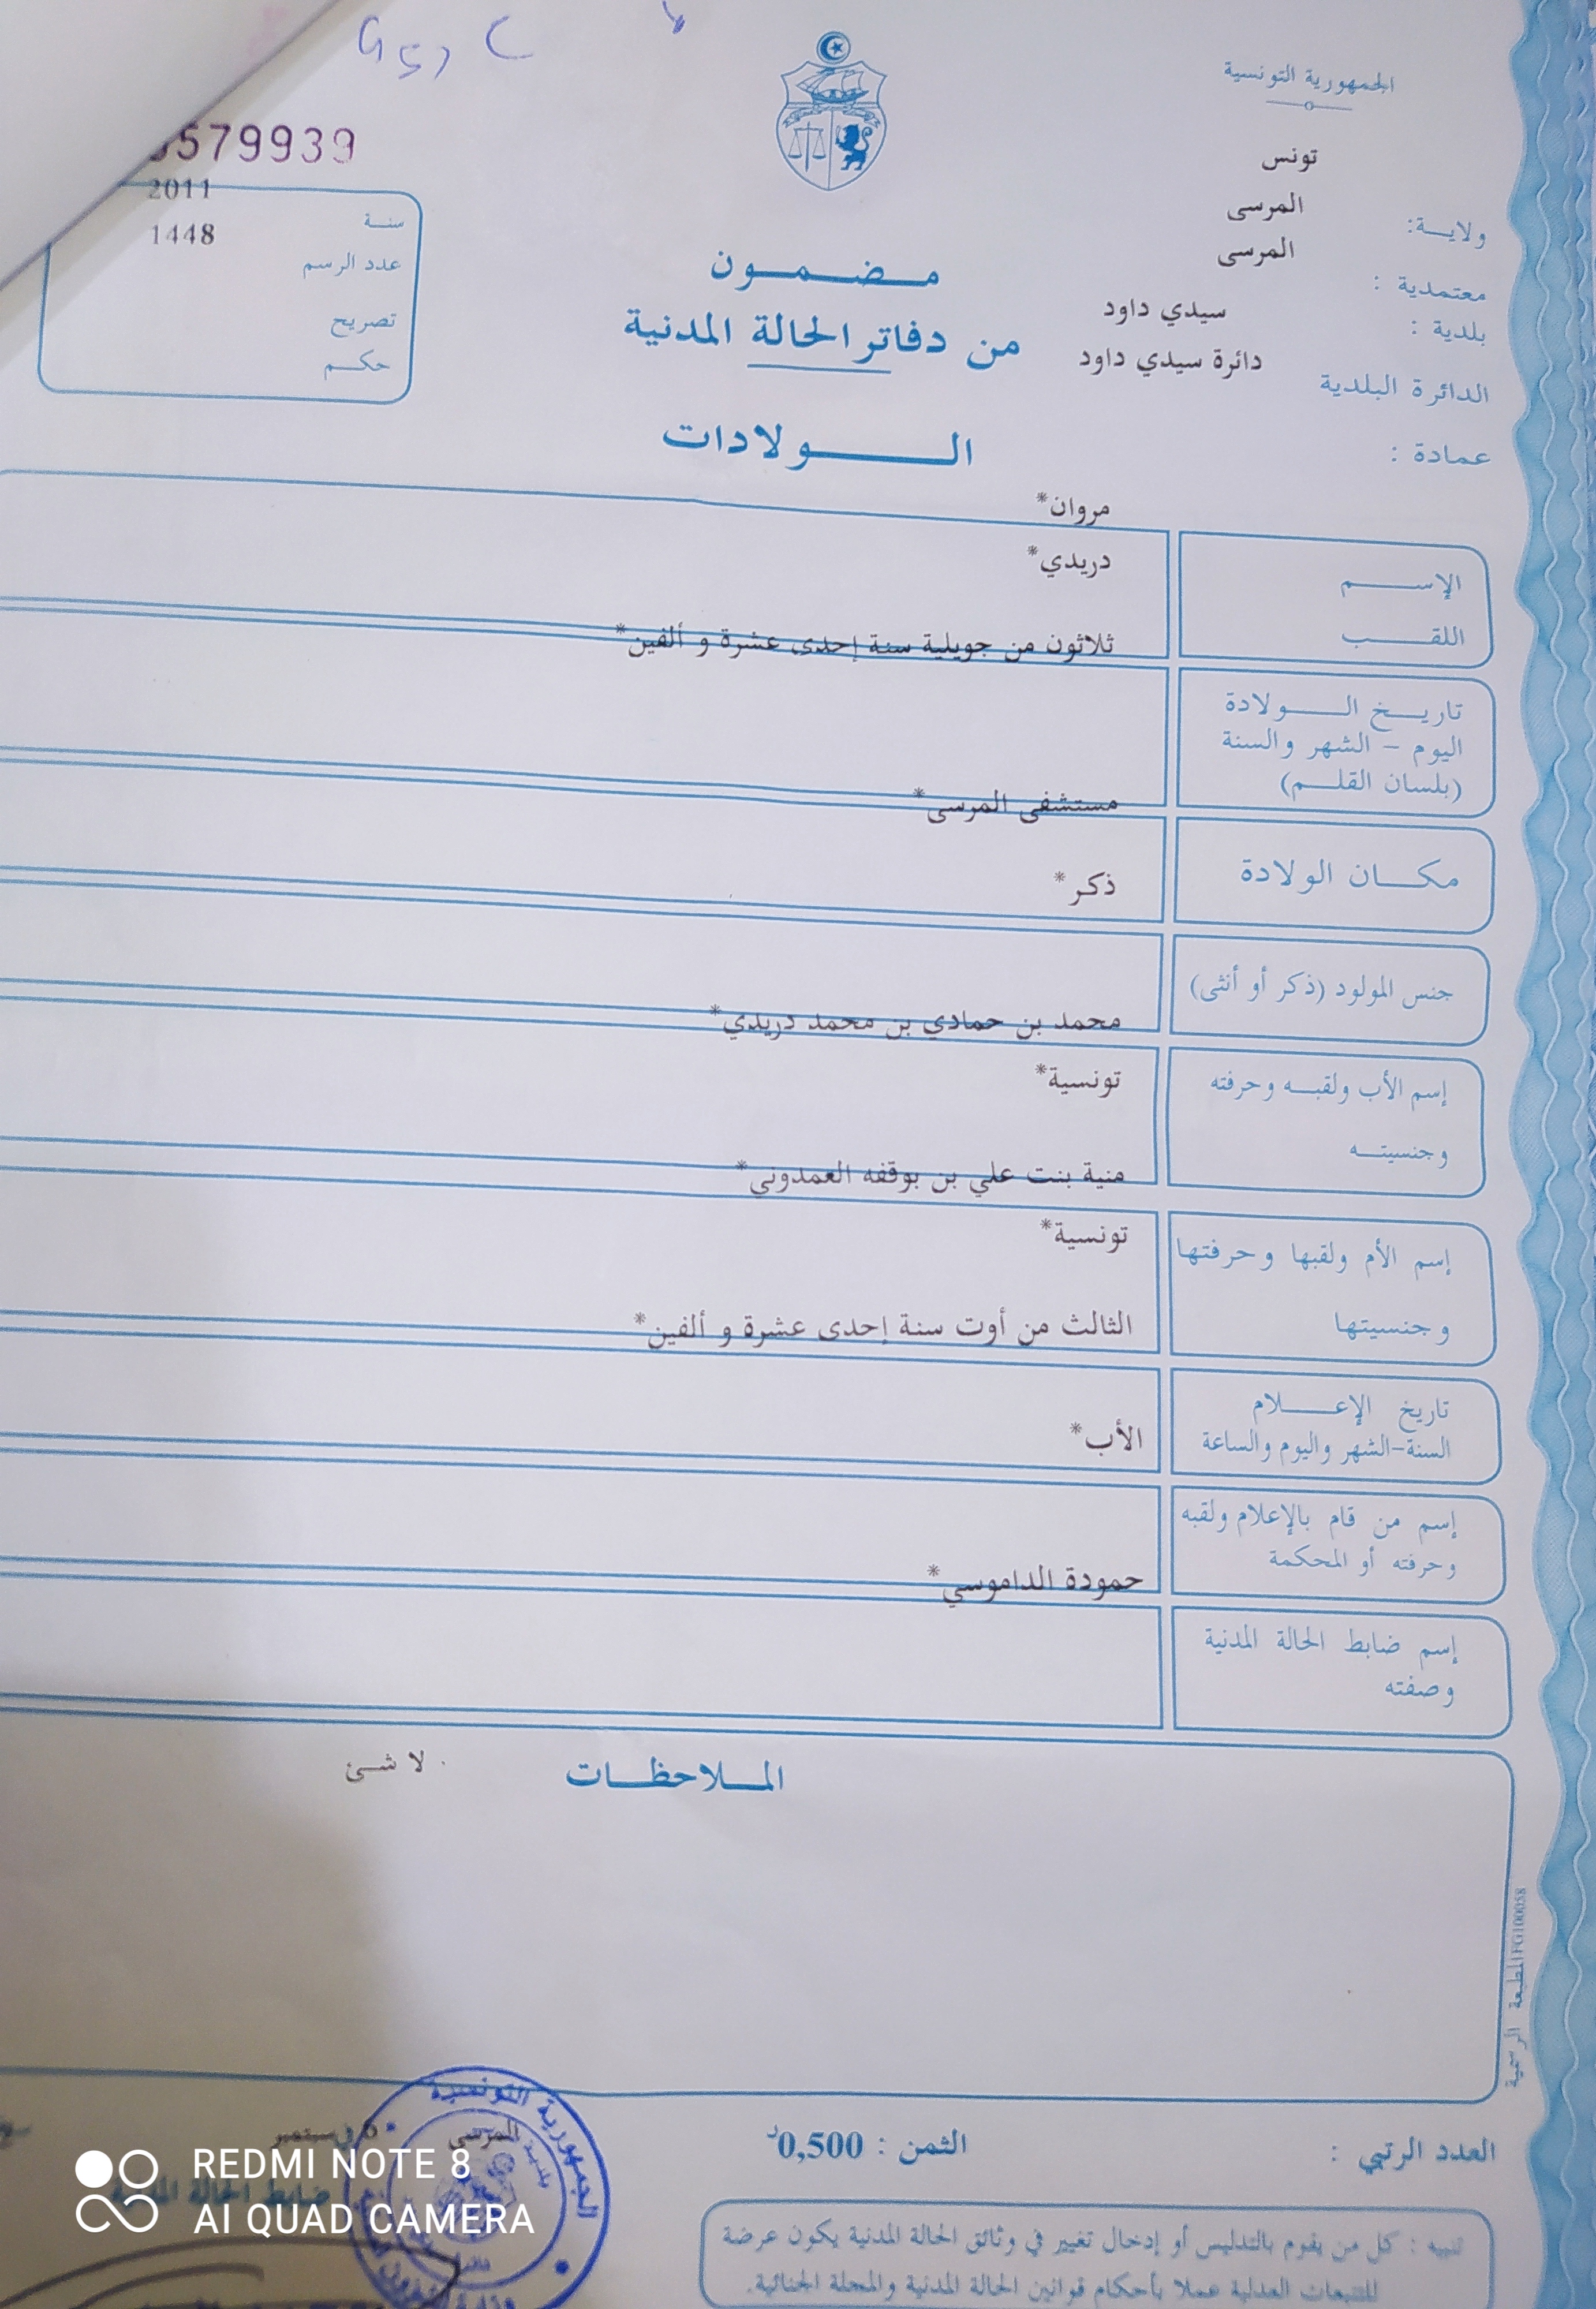 الجمهورية التونسية
تونس
ولاية:
المرسى
معتمدية :
المرسى
بلدية :
سيدي داود
الدائرة البلدية
دائرة سيدي داود
عمادة :
579939
2011
سنة
1448
عدد الرسم
تصريح
حكم
مضمون
من دفاتر الحالة المدنية
الولادات
مروان*
الإسم
دريدي*
اللقب
ثلاثون من جويلية سنة إحدى عشرة و ألفين*
تاريخ الولادة
اليوم - الشهر والسنة
(بلسان القلم)
مستشفى المرسى*
مكان الولادة
ذكر*
جنس المولود (ذكر أو أنثى)
محمد بن حمادي بن محمد دريدي*
إسم الأب ولقبه وحرفته
تونسية*
وجنسيته
منية بنت علي بن بوقفه العمدوني*
إسم الأم ولقبها وحرفتها
تونسية*
وجنسيتها
الثالث من أوت سنة إحدى عشرة و ألفين*
تاريخ الإعلام
السنة-الشهر واليوم والساعة
الأب*
إسم من قام بالإعلام ولقبه
وحرفته أو المحكمة
حمودة الداموسي*
إسم ضابط الحالة المدنية
وصفته
الملاحظات
. لا شئ
المطبعة الرسمية FG100058
العدد الرتبي :
الثمن : 0,500د
المرسى
في 6 سبتمبر
ضابط الحالة
الجمهورية التونسية
تنبيه : كل من يقوم بالتدليس أو إدخال تغيير في وثائق الحالة المدنية يكون عرضة
للتتبعات العدلية عملا بأحكام قوانين الحالة المدنية والمجلة الجنائية.
REDMI NOTE 8
AI QUAD CAMERA